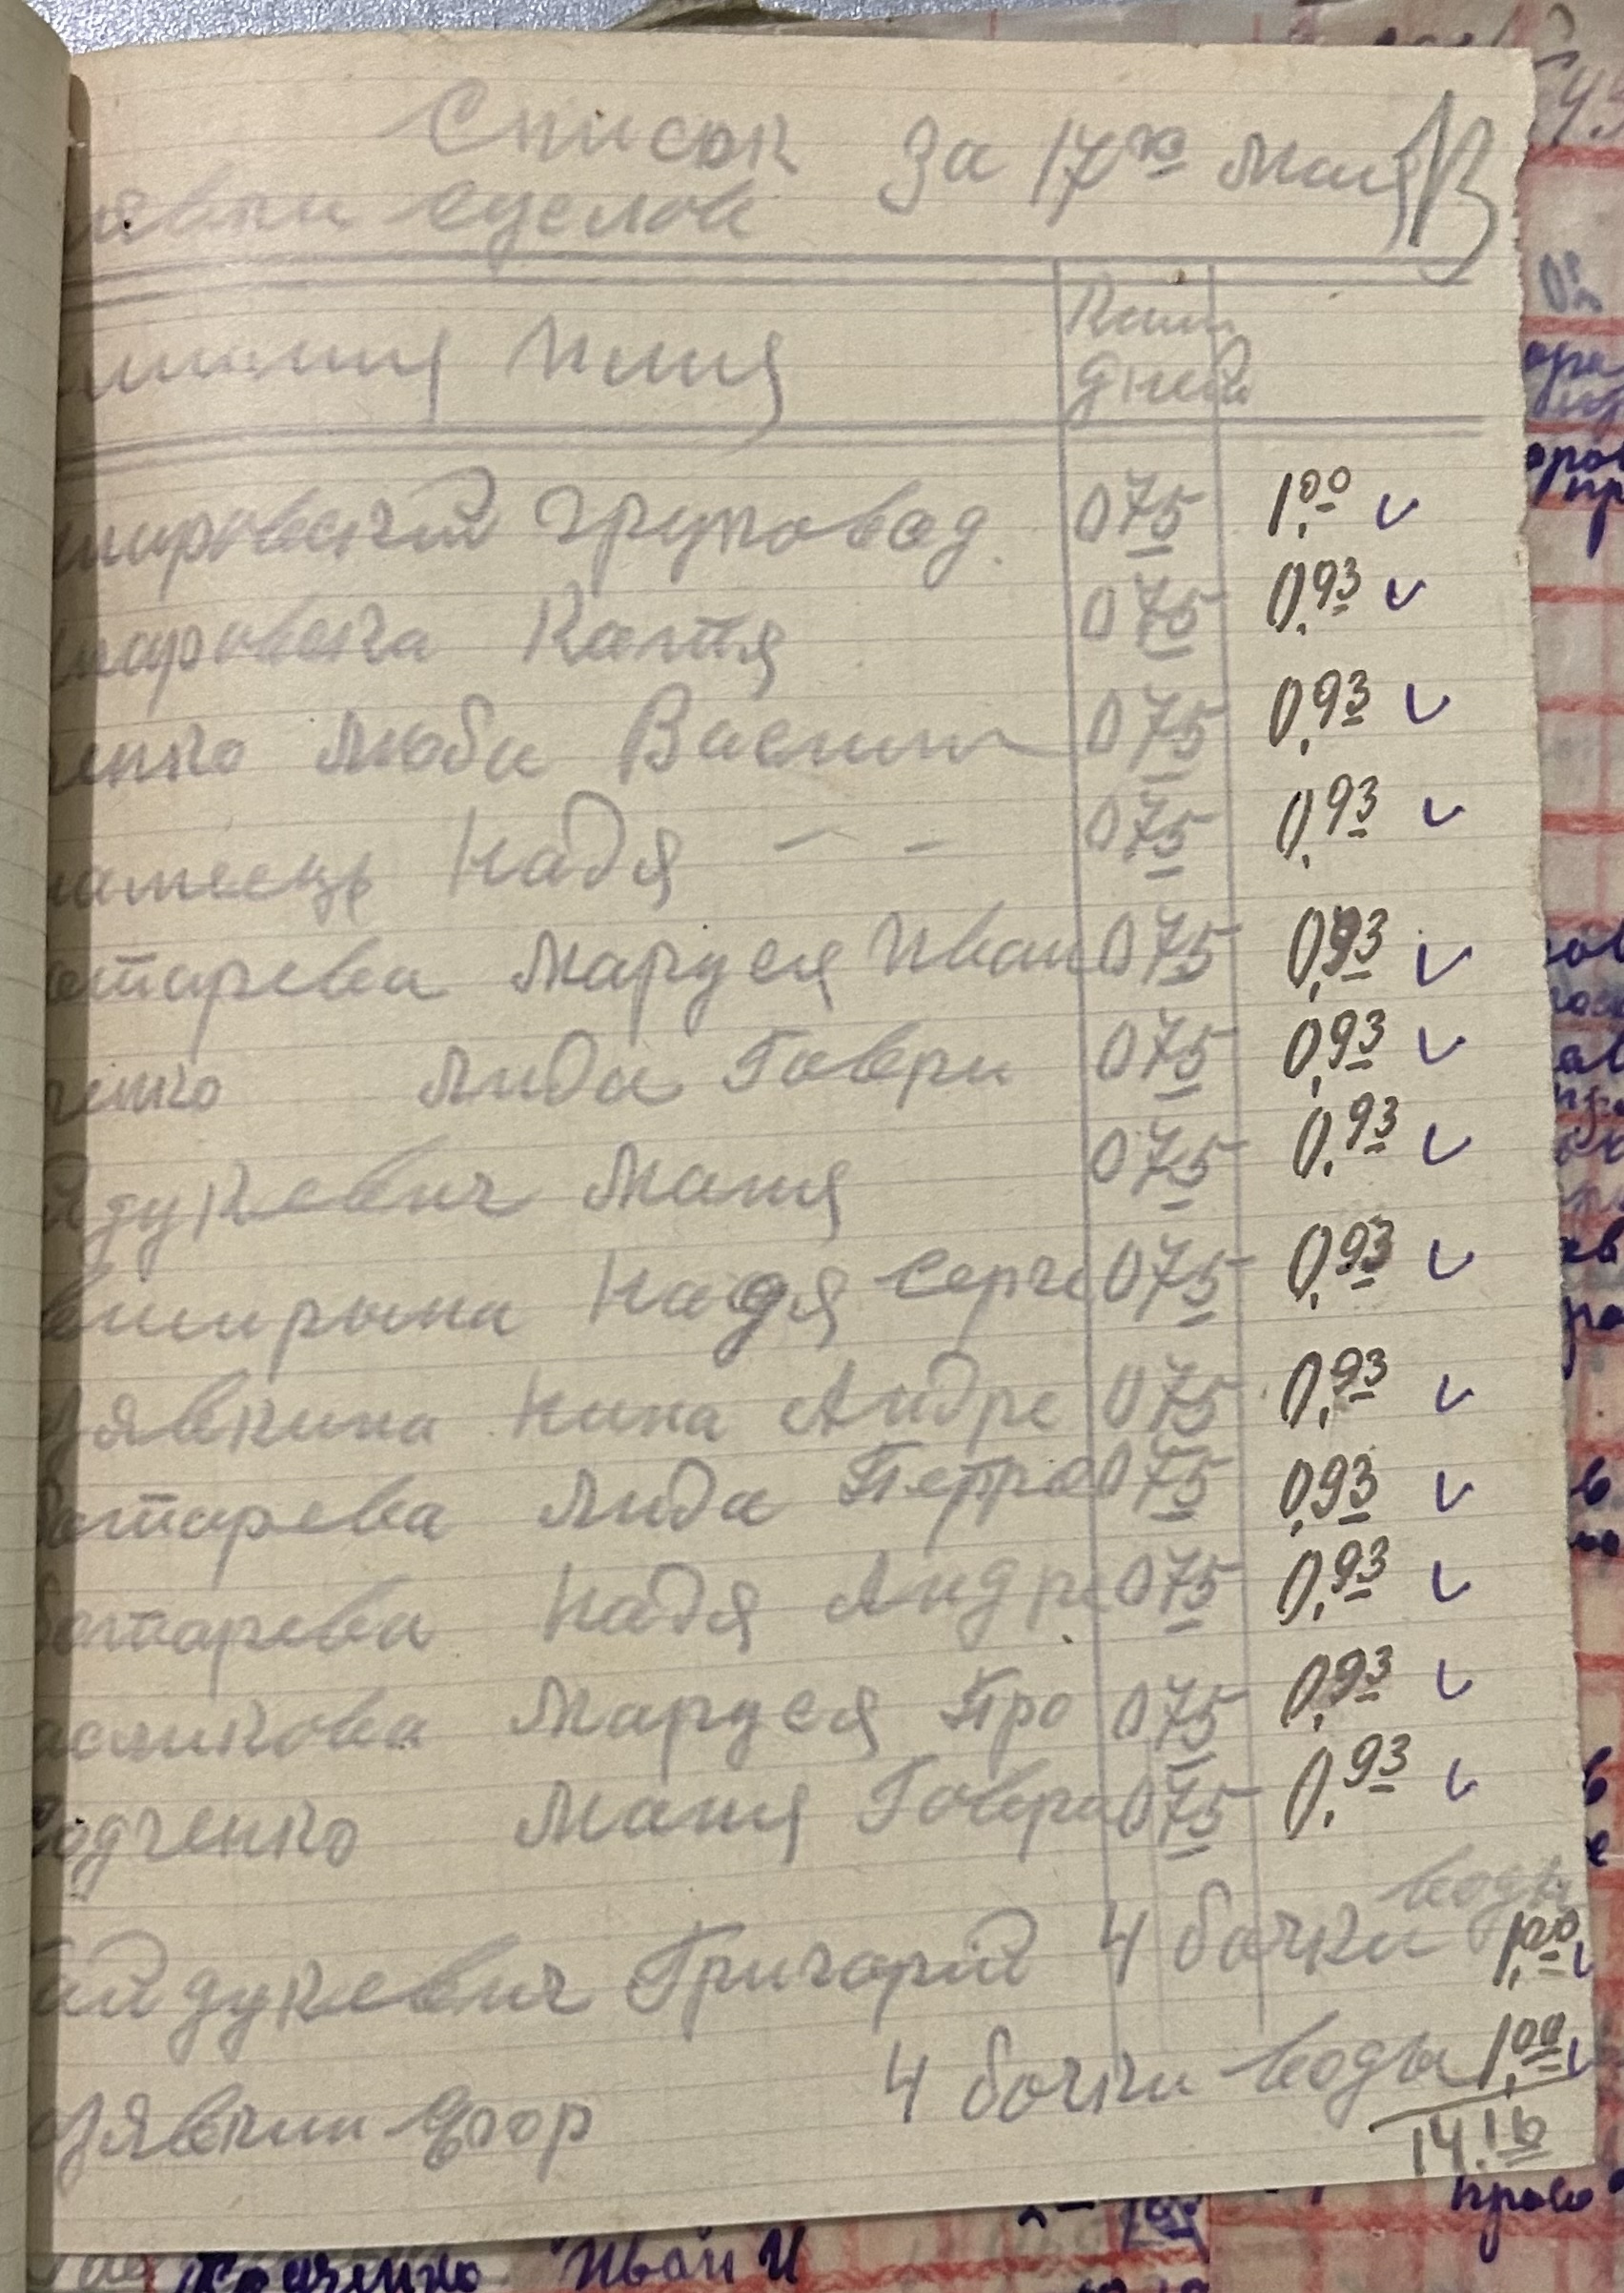 Список за 17го мая
явки суслов
милия Имя Кали дней
мировский груповод. 075 1,00 ✓
маровска Катя 075 0,93 ✓
енко Люба Васили 075 0,93 ✓
Надя — — 075 0,93 ✓
отарева Маруся Иван 075 0,93 ✓
енко Лида Говри 075 0,93 ✓
йдукевич Маня 075 0,93 ✓
Надя Серге 075 0,93 ✓
зявкина Нина Андре 075 0,93 ✓
ботарева Лида Петро 075 0,93 ✓
ботарева Надя Андре 075 0,93 ✓
асликова Маруся Про 075 0,93 ✓
одченко Маня Говри 075 0,93 ✓
айдукевич Григорий 4 бочки воды 1,00 ✓
зявкин Егор 4 бочки воды 1,00 ✓
14.16
Иван И